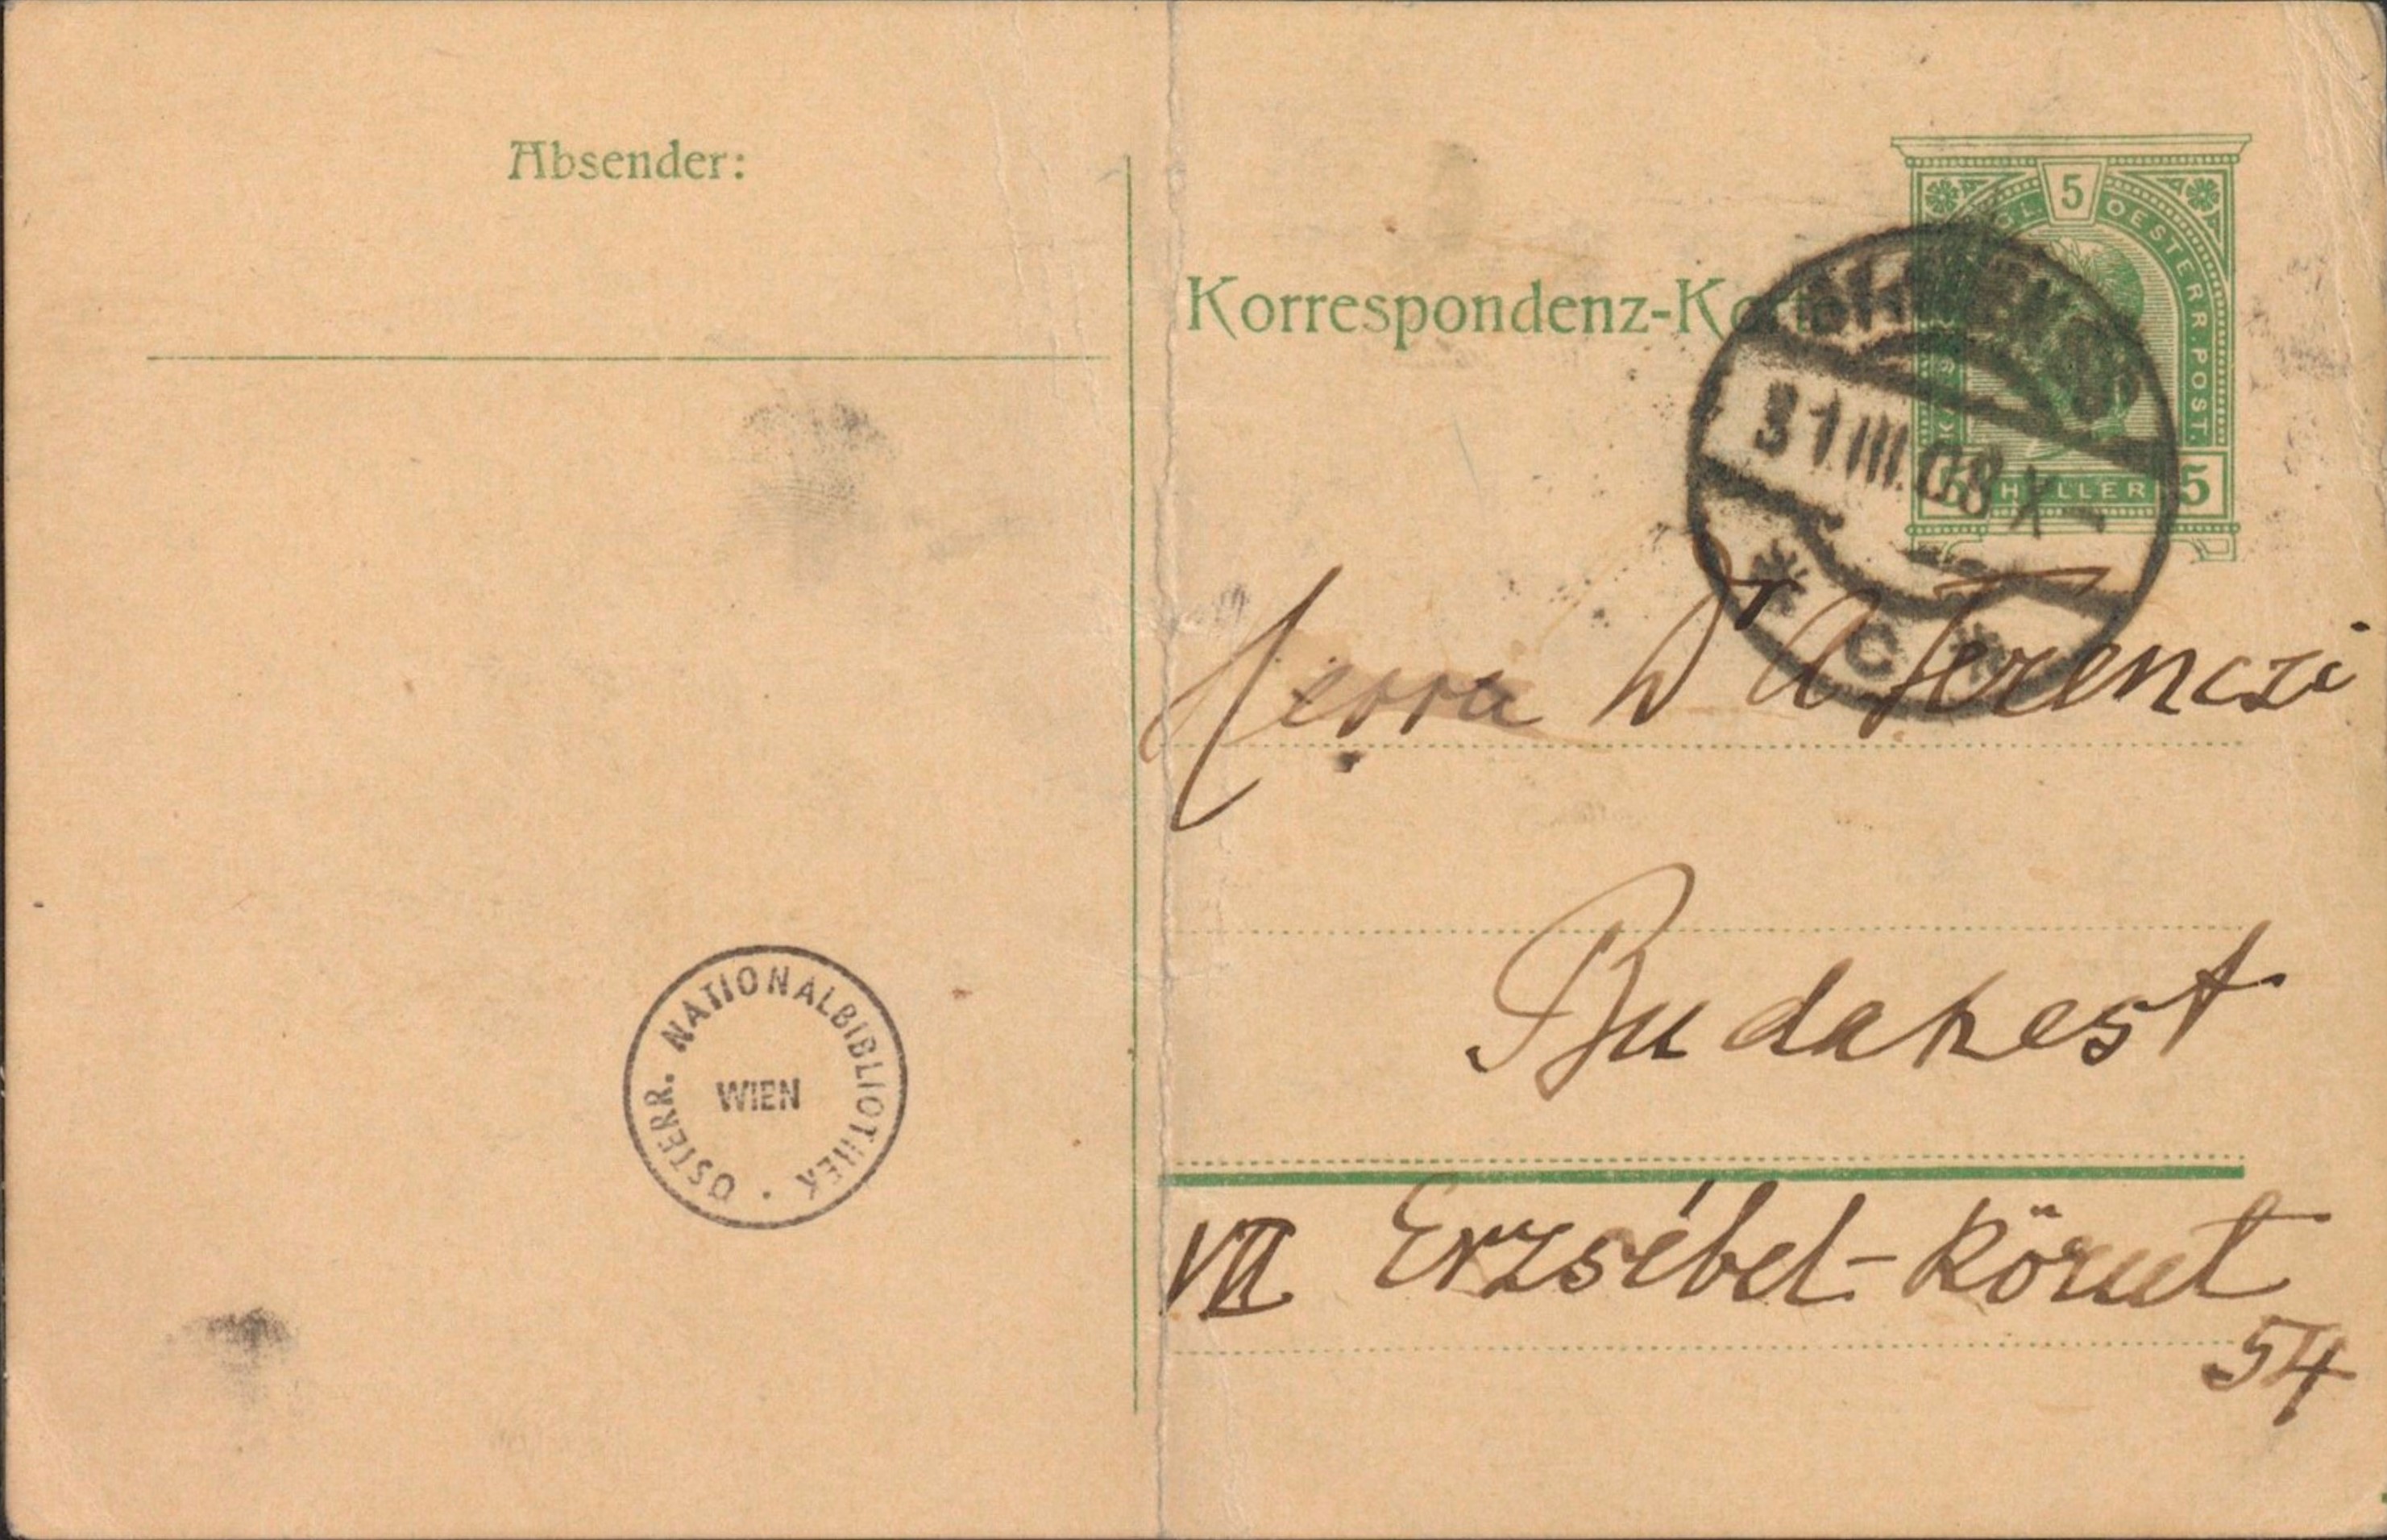 Absender:
Korrespondenz-Karte
5
OESTERR. POST.
HELLER
5
31.III.08 X-
* C *
Herrn Dr A Ferenczi
Budapest
VII Erzsébet-Körut
54
ÖSTERR. NATIONALBIBLIOTHEK
WIEN